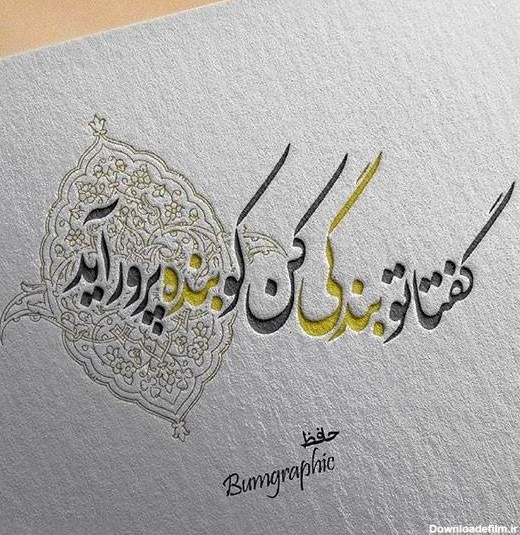 گفتا تو بندگی کن کو بنده پرور آید
حافظ
Bumgraphic
Downloadefilm.ir